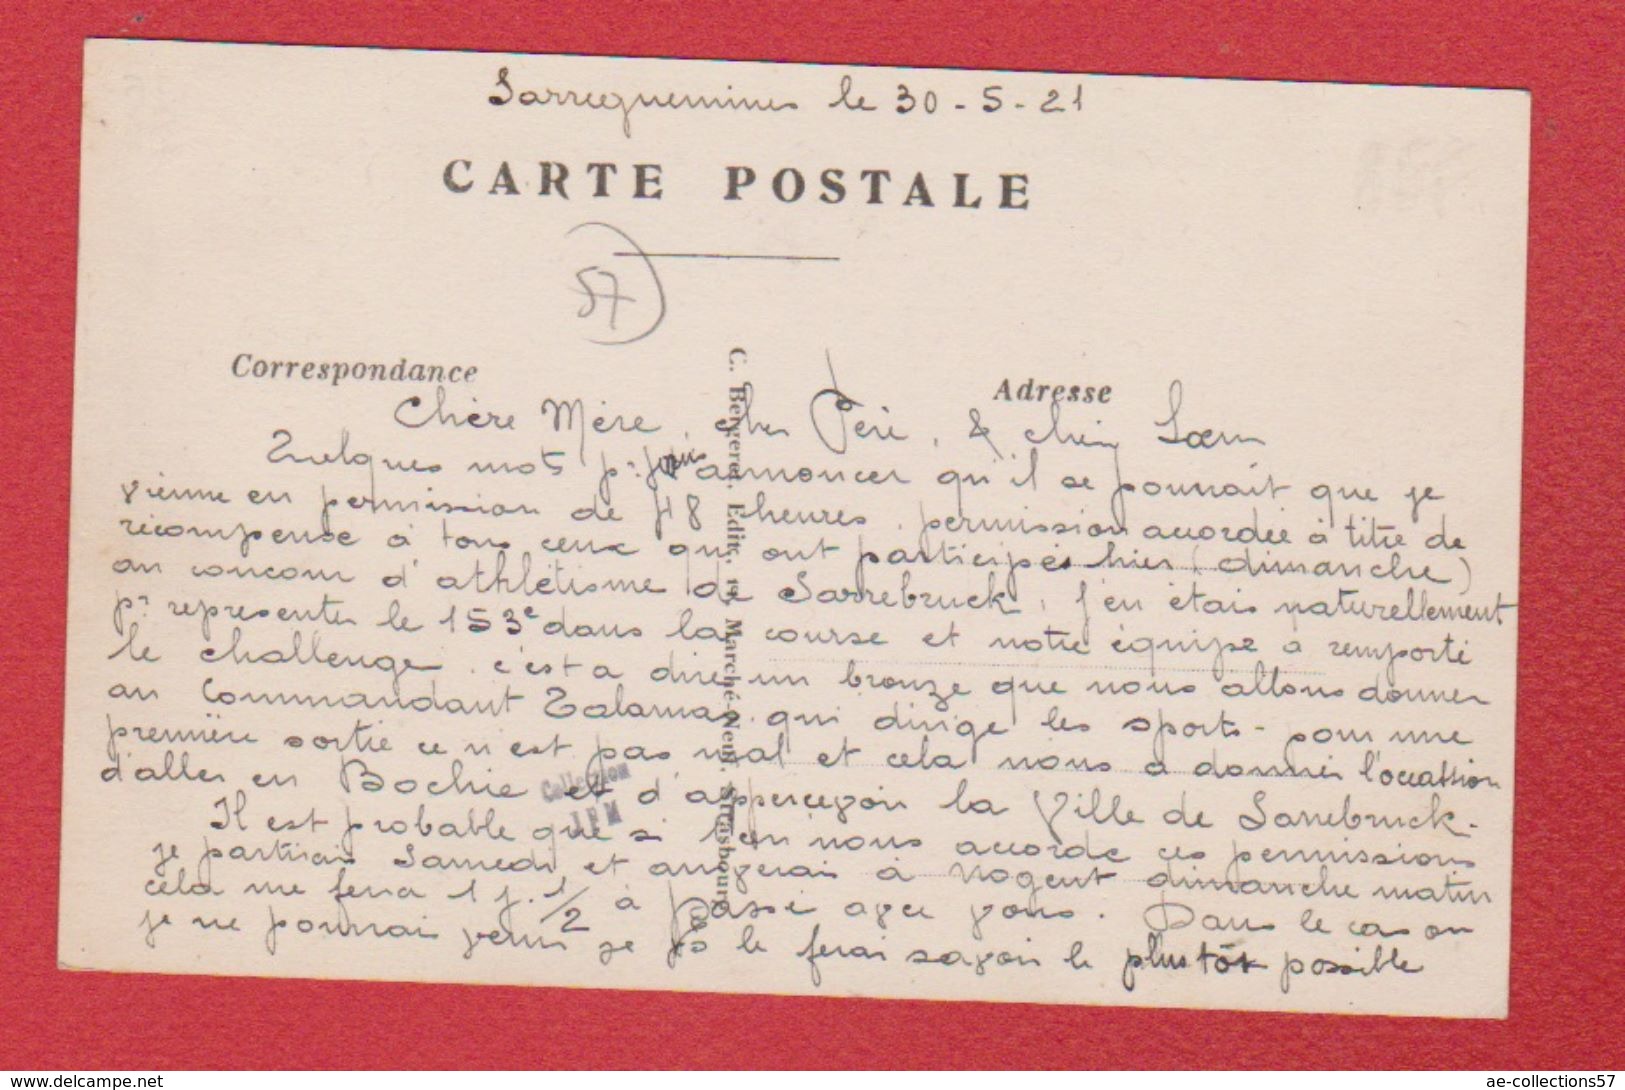 Sarreguemines le 30-5-21
CARTE POSTALE
57
Correspondance
Adresse
Chère Mère, cher Père, & chère Sœur
Quelques mots pr vous annoncer qu'il se pourrait que je
vienne en permission de 48 heures, permission accordée à titre de
récompense à tous ceux qui ont participés hier (dimanche)
au concour d'athlétisme de Sarrebruck, j'en étais naturellement
pr représenter le 153e dans la course et notre équipe a remporté
le challenge c'est a dire un bronze que nous allons donner
au Commandant qui dirige les sports - pour une
première sortie ce n'est pas mal et cela nous a donner l'occassion
d'aller en Bochie et d'appercevoir la Ville de Sarrebruck.
Il est probable que si l'en nous accorde ces permissions
je partirais Samedi et arriverai à Nogent dimanche matin
cela me fera 1 j. 1/2 à passé avec vous. Dans le cas ou
je ne pourrai venir je vs le ferai savoir le plus tôt possible
C. Bergeret, Edit., 19, Marché-Neuf, Strasbourg
Collection
JPM
www.delcampe.net
ae-collections57